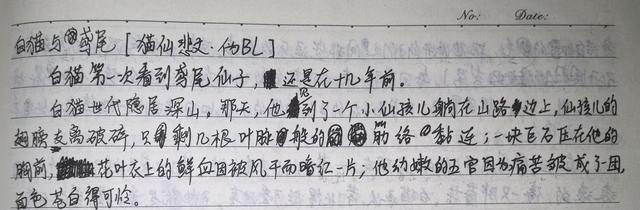 No:        Date:
白猫与鸢尾 [ 猫仙悲文·伪BL ]
白猫第一次看到鸢尾仙子，还是在十几年前。
白猫世代隐居深山。那天，他见到了一个小仙孩儿躺在山路边上，仙孩儿的
翅膀支离破碎，只剩几根叶脉般的筋络黏连；一块巨石压在他的
胸前，花叶衣上的鲜血因被风干而暗红一片；他幼嫩的五官因为痛苦皱成了一团，
面色苍白得可怜。